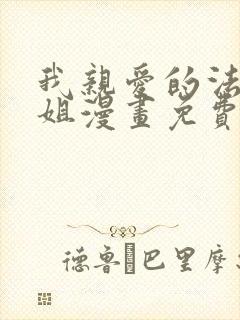 我親愛的法
姐漫畫免費
德魯巴里摩